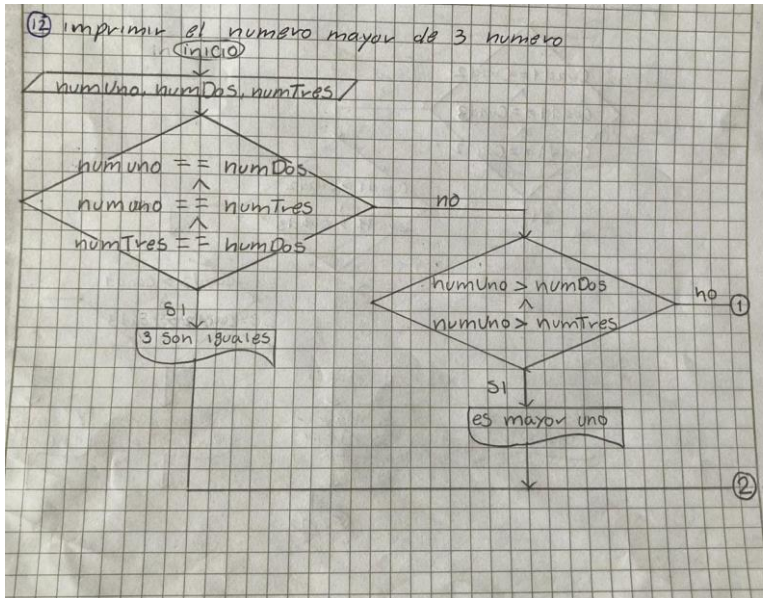 12 imprimir el numero mayor de 3 numero
inicio
numUno, numDos, numTres
numuno == numDos
^
numuno == numTres
^
numTres == numDos
no
SI
3 son iguales
numUno > numDos
^
numUno > numTres
no
1
SI
es mayor uno
2